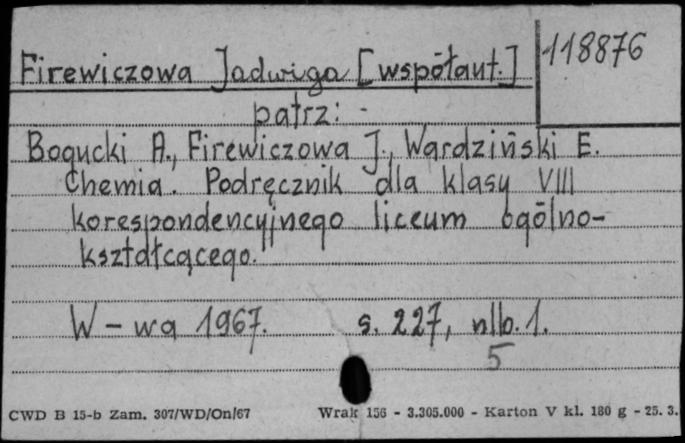 Firewiczowa Jadwiga [współaut.]
118876
patrz: -
Bogucki A., Firewiczowa J., Wardziński E.
Chemia. Podręcznik dla klasy VIII
korespondencyjnego liceum ogólno-
kształcącego.
W-wa 1967. s. 227, nlb. 1.
5
CWD B 15-b Zam. 307/WD/On/67 Wrak 156 - 3.305.000 - Karton V kl. 180 g - 25. 3.